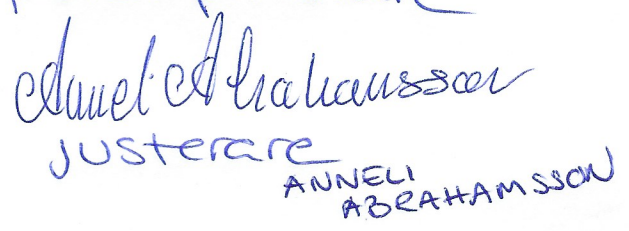 Anneli Abrahamsson
justerare
ANNELI
ABRAHAMSSON